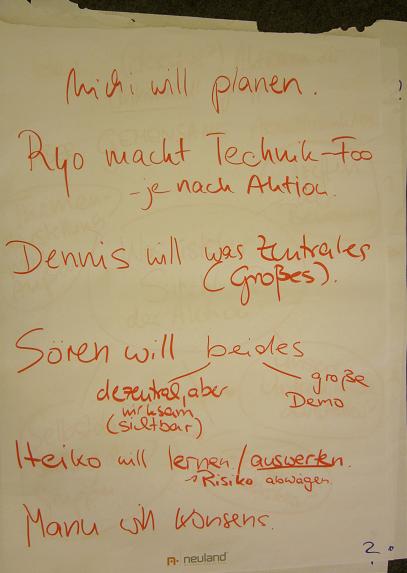 Michi will planen.
Ryo macht Technik-Foo
- je nach Aktion.
Dennis will was Zentrales
(Großes).
Sören will beides
dezentral, aber
wirksam
(sichtbar)
große
Demo
Heiko will lernen/auswerten.
→ Risiko abwägen
Manu will Konsens.
neuland
2.